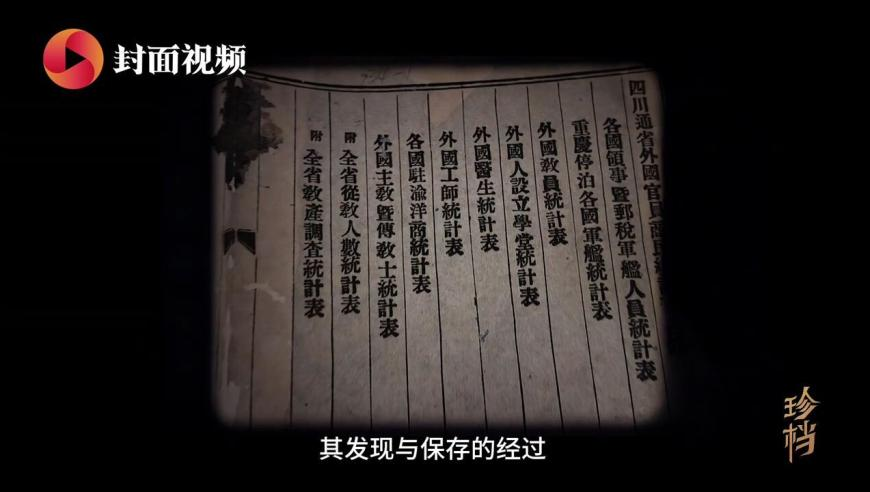 封面视频
四川通省外國官員商民統計
各國領事暨郵稅軍艦人員統計表
重慶停泊各國軍艦統計表
外國教員統計表
外國人設立學堂統計表
外國醫生統計表
外國工師統計表
各國駐渝洋商統計表
外國主教暨傳教士統計表
附 全省從教人數統計表
附 全省教產調查統計表
珍档
其发现与保存的经过